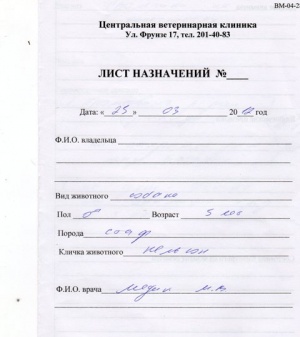 ВМ-04-2
Центральная ветеринарная клиника
Ул. Фрунзе 17, тел. 201-40-83
ЛИСТ НАЗНАЧЕНИЙ №
Дата: « 25 » 03 20 год
Ф.И.О. владельца
Вид животного собака
Пол ♂ Возраст 5 лет
Порода стаф
Кличка животного Нельсон
Ф.И.О. врача